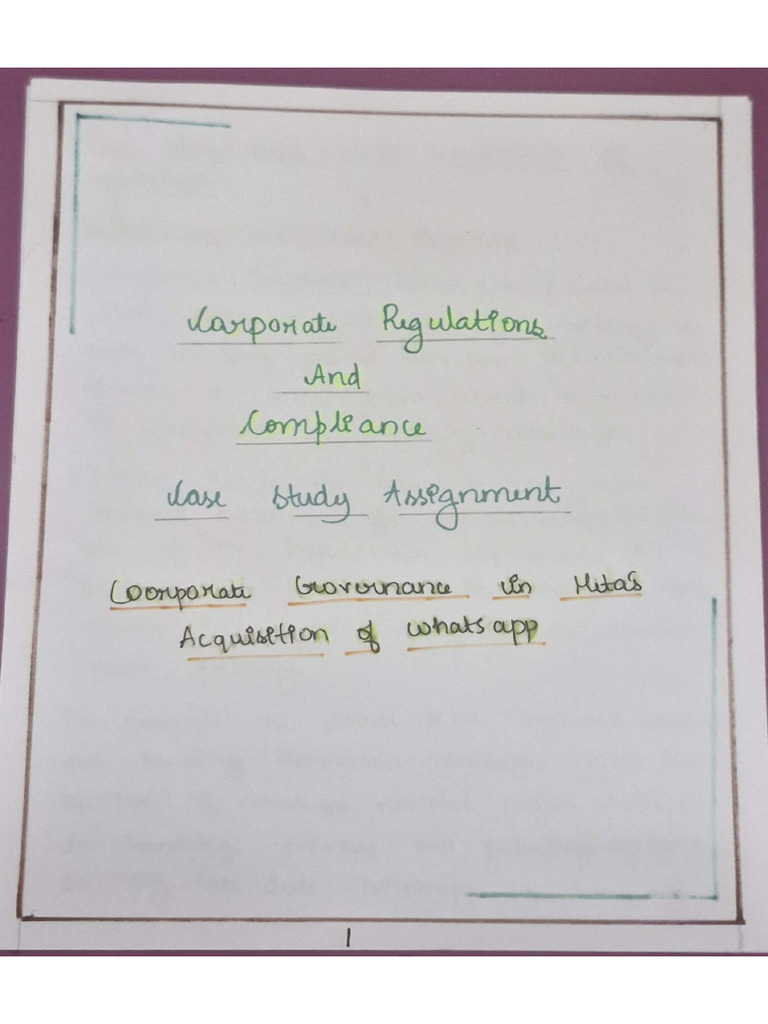 Corporate Regulations
And
Compliance
Case Study Assignment
Coorporate Governance in Meta's
Acquisition of whatsapp
1